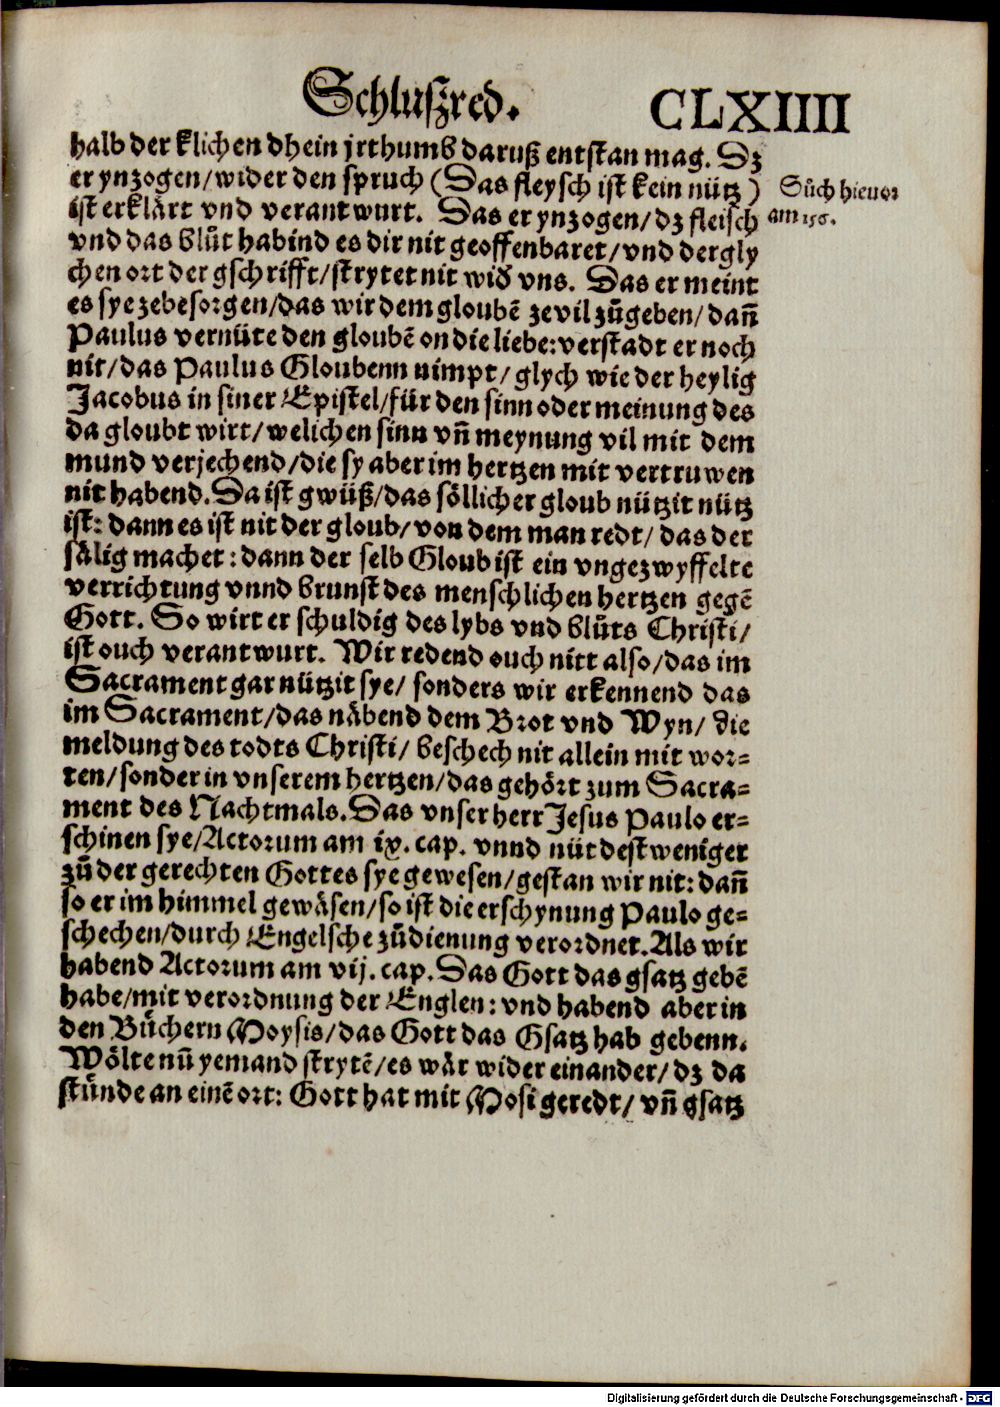 Schluſzred. CLXIIII
halb der klichen dhein jrthumb daruß entſtan mag. Dz
er ynzogen/wider den ſpruch (Das fleyſch iſt kein nütz)
Sůch hieuor
am 156.
iſt erklärt vnd verantwurt. Das er ynzogen/dz fleiſch
vnd das blůt habind es dir nit geoffenbaret/vnd dergly
chen ort der gſchrifft/ſtrytet nit wið vns. Das er meint
es ſye zebeſorgen/das wir dem gloubē ze vil zůgeben/dañ
Paulus vernüte den gloubē on die liebe:verſtadt er noch
nit/das Paulus Gloubenn nimpt/glych wie der heylig
Jacobus in ſiner Epiſtel/für den ſinn oder meinung des
da gloubt wirt/welichen ſinn vñ meynung vil mit dem
mund verjechend/die ſy aber im hertzen mit vertruwen
nit habend. Da iſt gwüß/das ſöllicher gloub nützit nütz
iſt: dann es iſt nit der gloub/von dem man redt/das der
ſälig machet: dann der ſelb Gloub iſt ein vngezwyffelte
verrichtung vnnd brunſt des menſchlichen hertzen gegē
Gott. So wirt er ſchuldig des lybs vnd blůts Chriſti/
iſt ouch verantwurt. Wir redend ouch nitt alſo/das im
Sacrament gar nützit ſye/ſonders wir erkennend das
im Sacrament/das näbend dem Brot vnd Wyn/die
meldung des todts Chriſti/beſchech nit allein mit wor⸗
ten/ſonder in vnſerem hertzen/das gehört zum Sacra⸗
ment des Nachtmals. Das vnſer herr Jeſus Paulo er⸗
ſchinen ſye/Actorum am ix. cap. vnnd nüt deſtweniger
zů der gerechten Gottes ſye geweſen/geſtan wir nit: dañ
ſo er im himmel gewäſen/ſo iſt die erſchynung Paulo ge⸗
ſchechen/durch Engelſche zůdienung verordnet. Als wir
habend Actorum am vij. cap. Das Gott das gſatz gebē
habe/mit verordnung der Englen: vnd habend aber in
den Bůchern Moyſis/das Gott das Gſatz hab gebenn.
Wölte nů yemand ſtrytē/es wär wider einander/dz da
ſtůnde an einē ort: Gott hat mit Moſi geredt/vñ gſatz
Digitalisierung gefördert durch die Deutsche Forschungsgemeinschaft - DFG